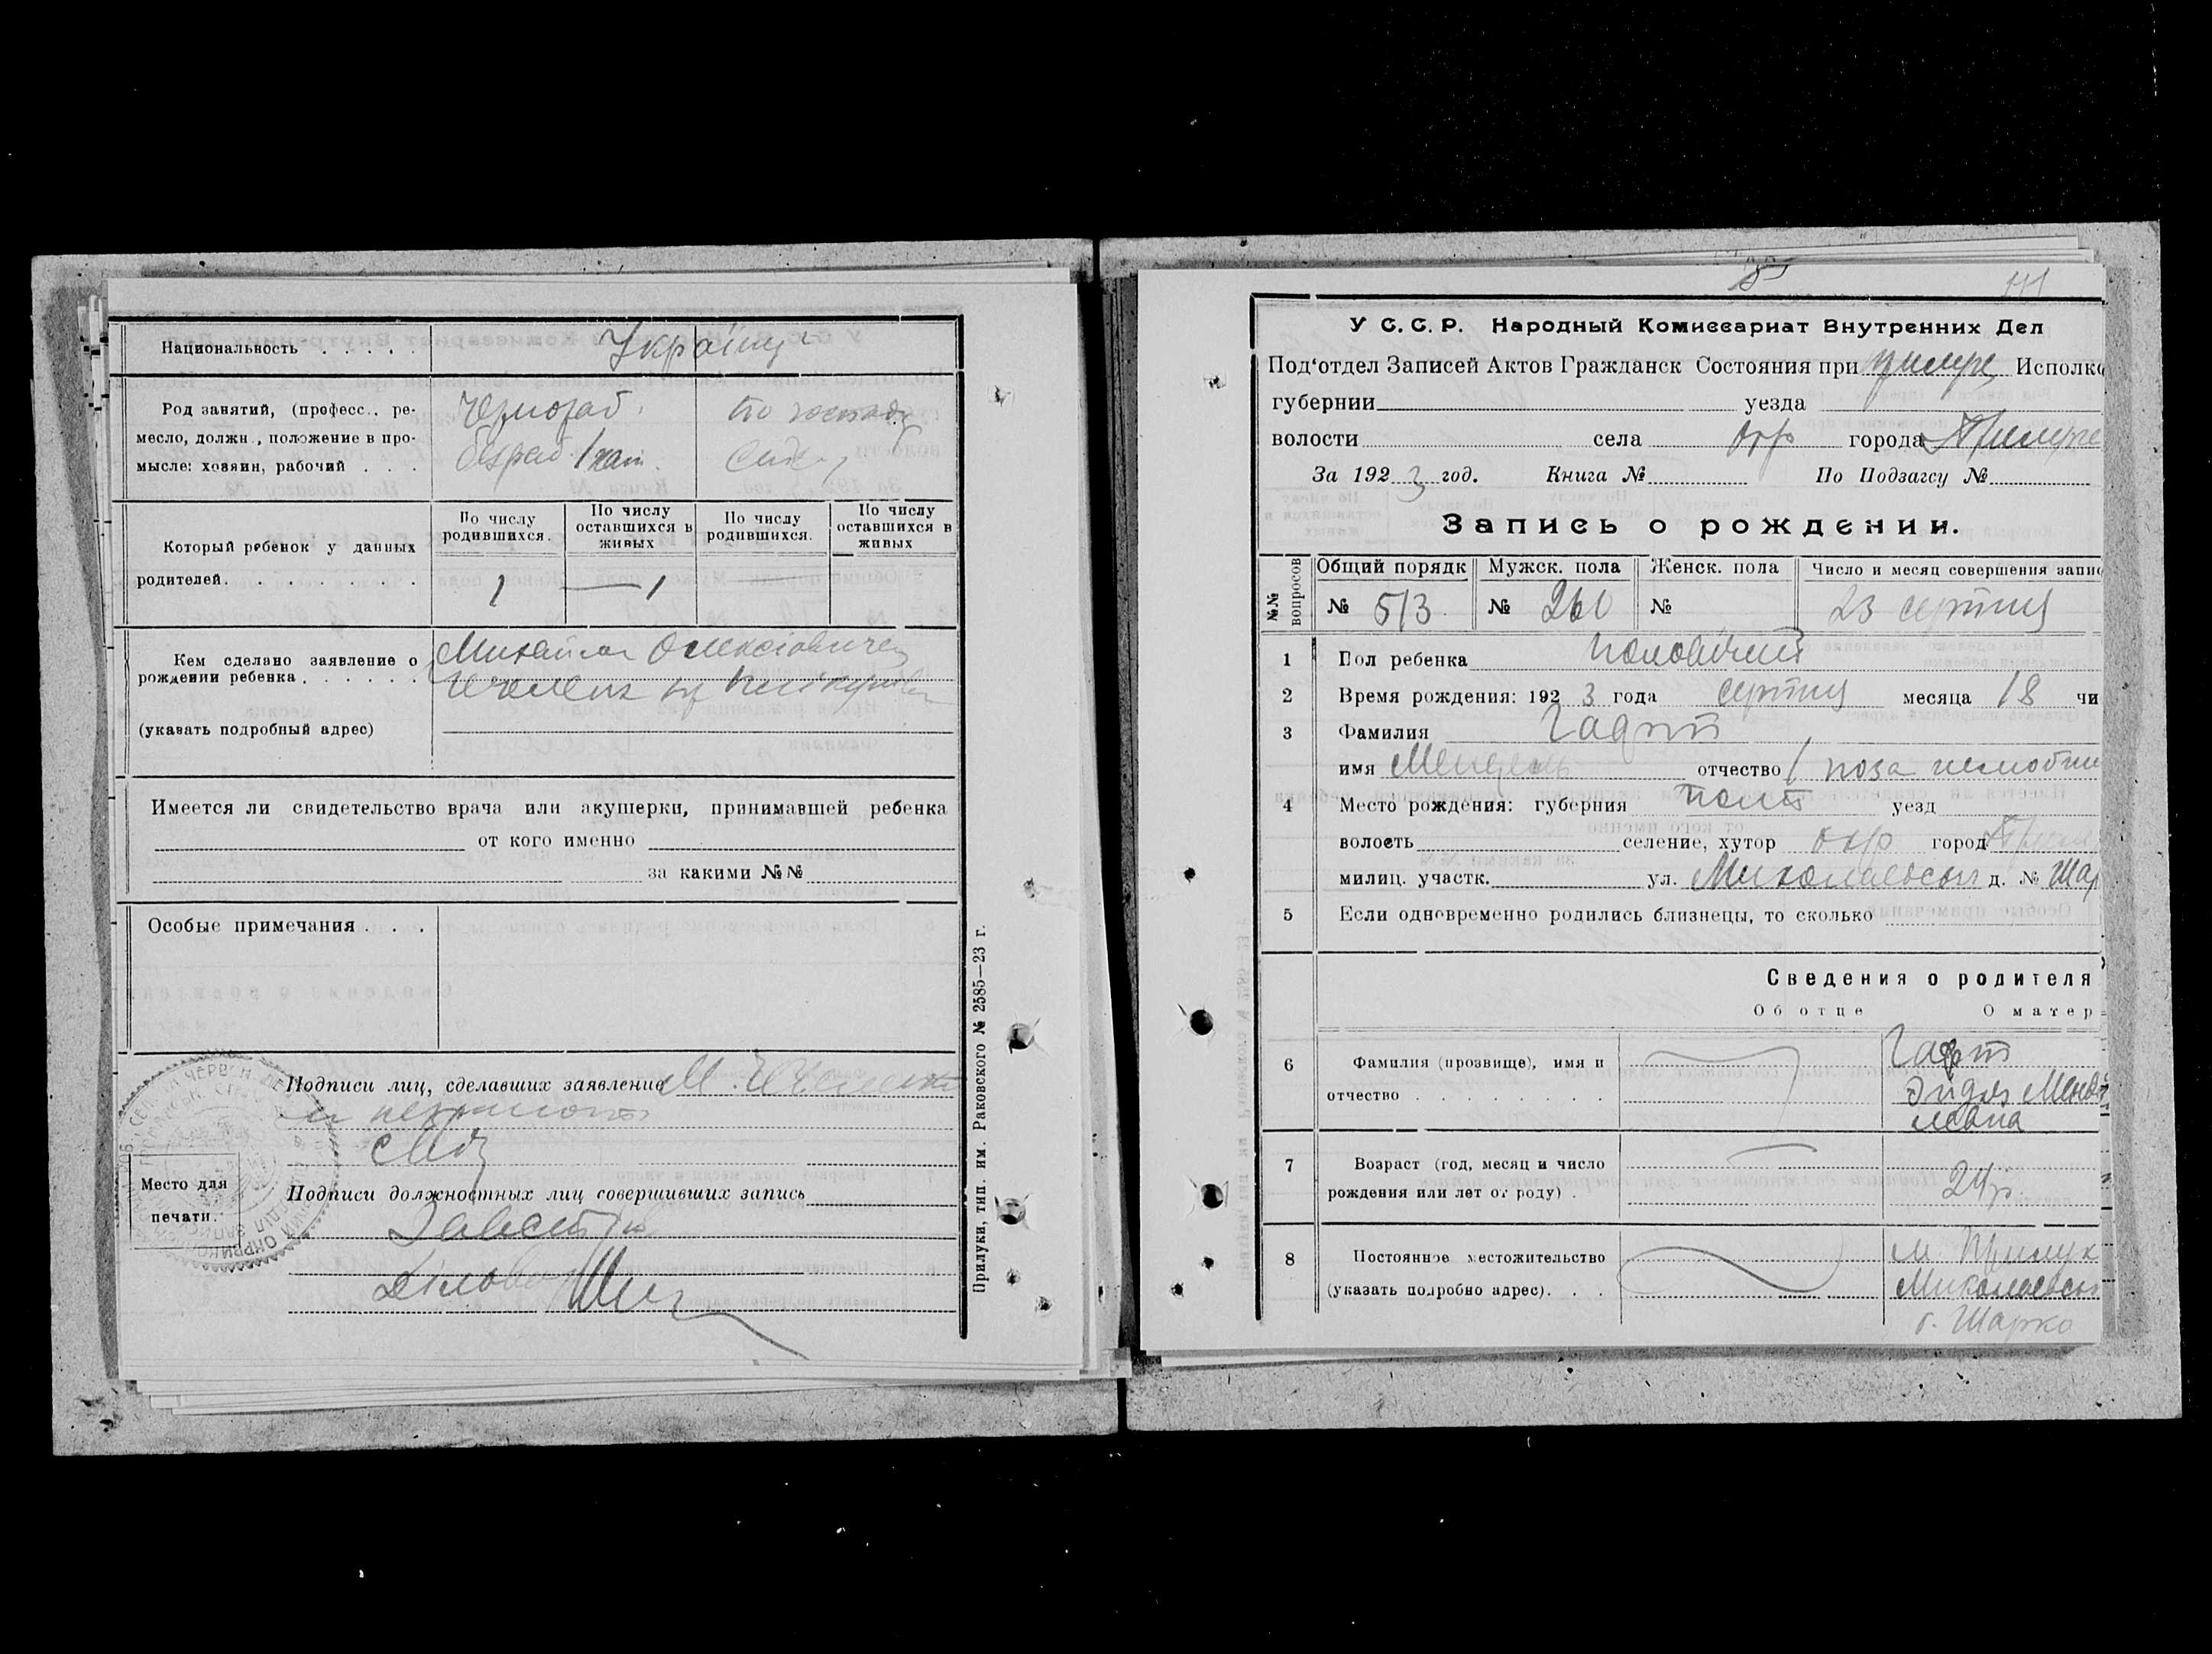 Национальность . . . . . Українці
Род занятий, (професс., ре-
месло, должн., положение в про-
мысле: хозяин, рабочий . . .
Чернораб.
безраб.
Который ребенок у данных
родителей. . . . . . . .
По числу родившихся.
По числу оставшихся в живых
По числу родившихся.
По числу оставшихся в живых
1 — 1
Кем сделано заявление о
рождении ребенка . . . . .
(указать подробный адрес)
Михайлом Олексіовичем
Имеется ли свидетельство врача или акушерки, принимавшей ребенка
от кого именно
за какими №№
Особые примечания . . .
Подписи лиц, сделавших заявление М.
Место для
печати.
Подписи должностных лиц совершивших запись
Завст
Діловод
Прилуки, тип. им. Раковского № 2585—23 г.
111
У С.С.Р. Народный Комиссариат Внутренних Дел
Под‘отдел Записей Актов Гражданск Состояния при Прилуц Исполко
губернии уезда
волости села окр города Прилуки
За 1923 год. Книга № По Подзагсу №
Запись о рождении.
№№ вопросов
Общий порядк Мужск. пола Женск. пола Число и месяц совершения запис
№ 513 № 260 № 23 серпня
1 Пол ребенка чоловічий
2 Время рождения: 1923 года серпня месяца 18 чи
3 Фамилия Гафт
имя Мендель отчество поза шлюбни
4 Место рождения: губерния Полт уезд
волость селение, хутор окр город Прил
милиц. участк. ул. Миколаевськ д. № Шар
5 Если одновременно родились близнецы, то сколько
Сведения о родителя
Об отце О матер
6 Фамилия (прозвище), имя и
отчество . . . . . . . .
Гафт
Эйдля Мендэ
левна
7 Возраст (год, месяц и число
рождения или лет от роду) .
24 р
8 Постоянное местожительство
(указать подробно адрес). . .
м. Прилук
Миколаевськ
б. Шарко